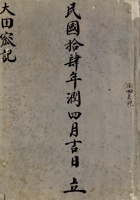 民國拾肆年潤四月吉日 立
大田嵙記